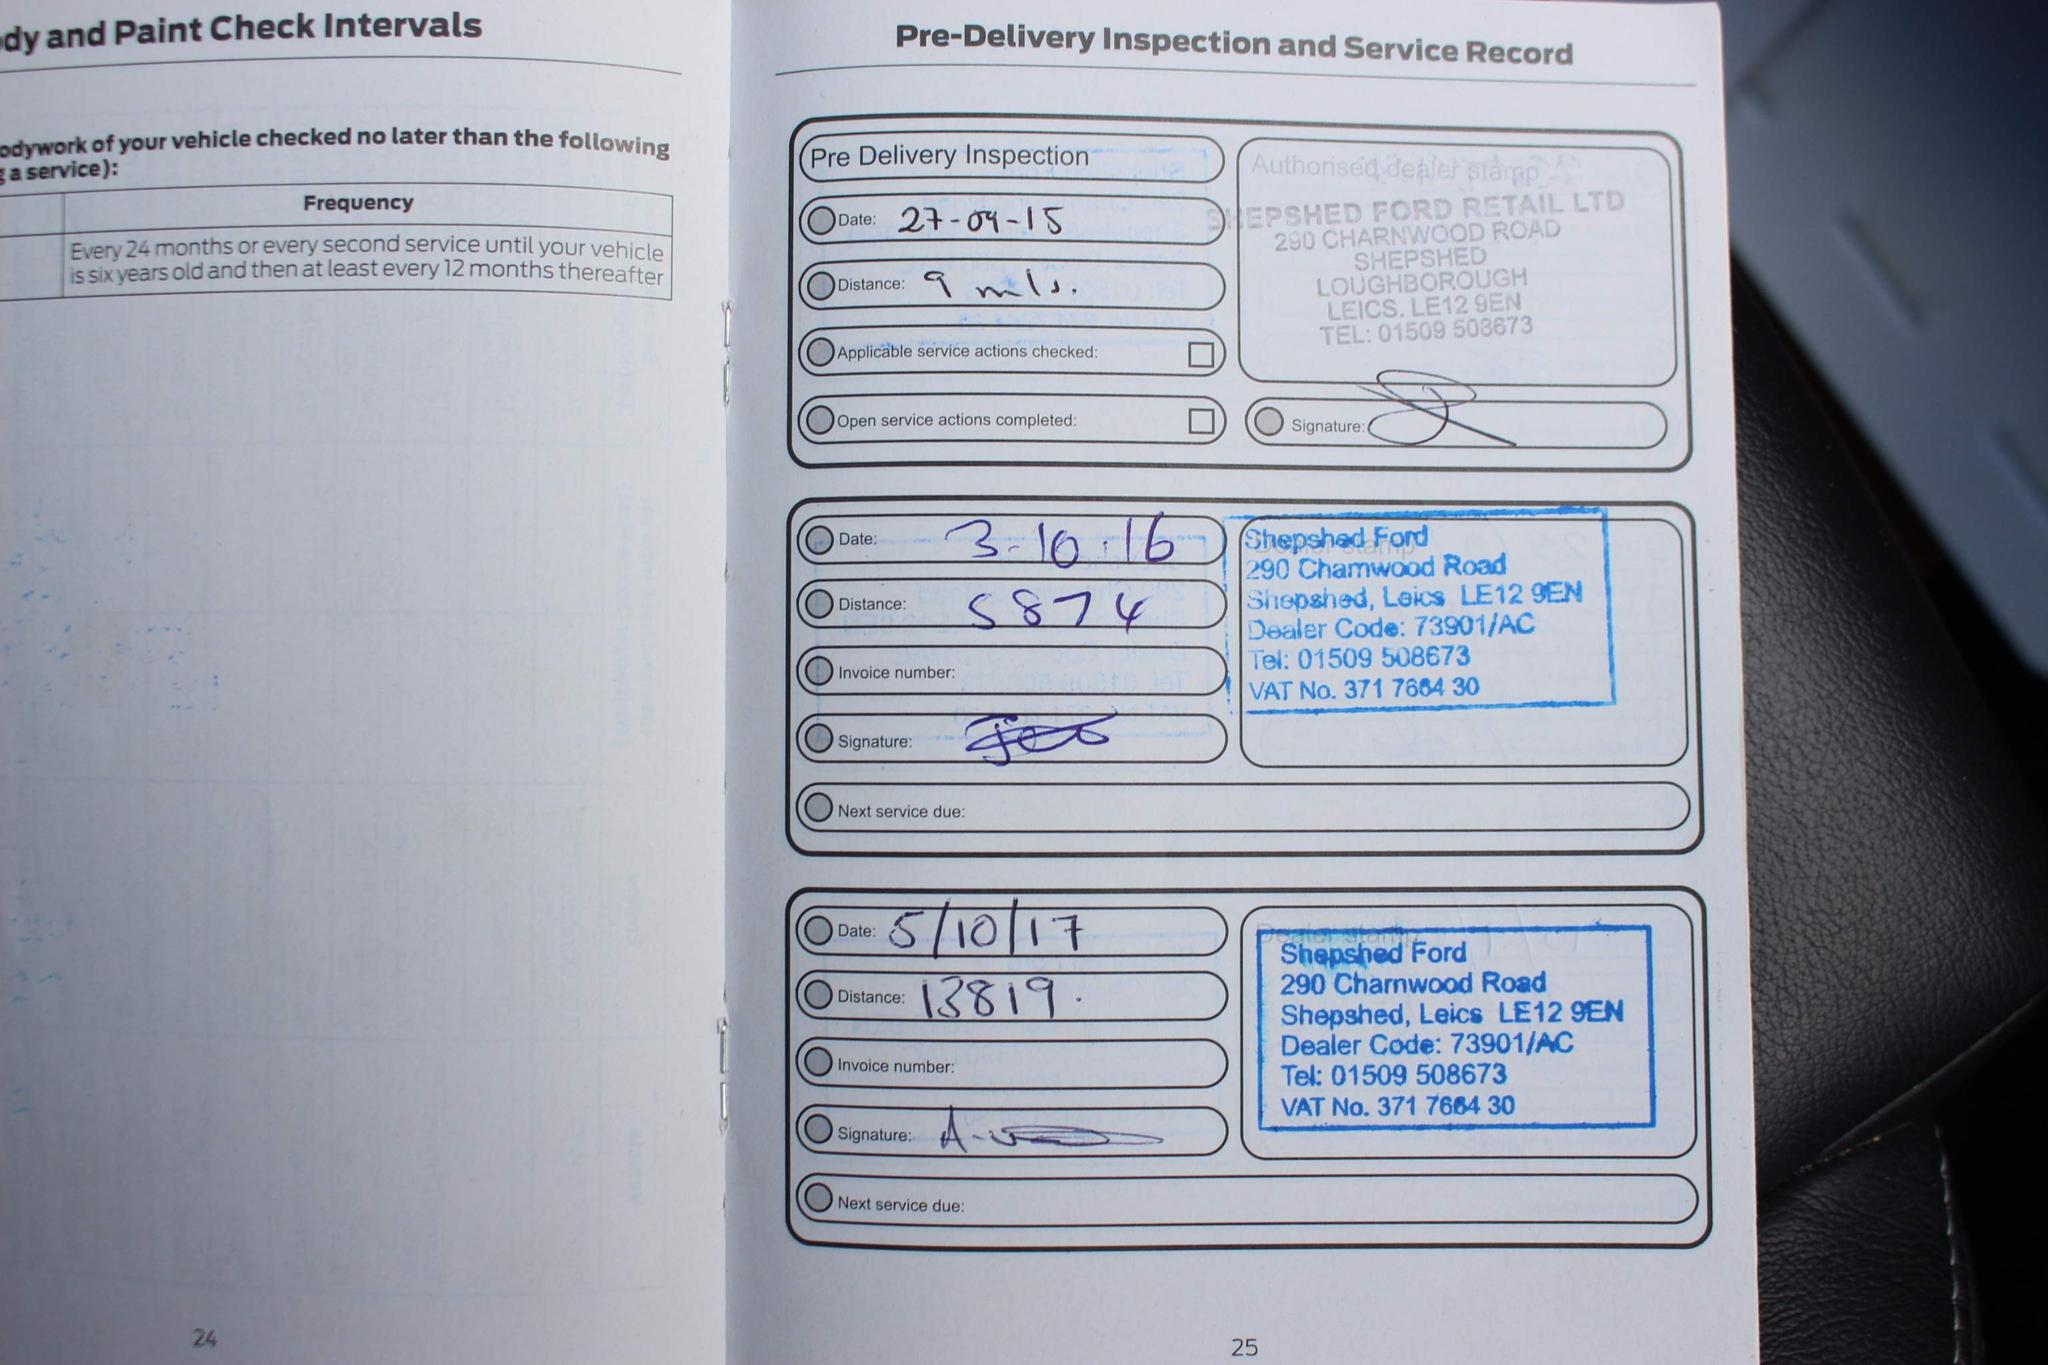 dy and Paint Check Intervals
odywork of your vehicle checked no later than the following
g a service):
Frequency
Every 24 months or every second service until your vehicle
is six years old and then at least every 12 months thereafter
24
Pre-Delivery Inspection and Service Record
Pre Delivery Inspection
Date: 27-09-15
Distance: 9 mls.
Applicable service actions checked:
Open service actions completed:
Authorised dealer stamp
SHEPSHED FORD RETAIL LTD
290 CHARNWOOD ROAD
SHEPSHED
LOUGHBOROUGH
LEICS. LE12 9EN
TEL: 01509 508673
Signature:
Date: 3-10.16
Distance: 5874
Invoice number:
Signature:
Dealer stamp
Shepshed Ford
290 Charnwood Road
Shepshed, Leics LE12 9EN
Dealer Code: 73901/AC
Tel: 01509 508673
VAT No. 371 7664 30
Next service due:
Date: 5/10/17
Distance: 13819.
Invoice number:
Signature:
Dealer stamp
Shepshed Ford
290 Charnwood Road
Shepshed, Leics LE12 9EN
Dealer Code: 73901/AC
Tel: 01509 508673
VAT No. 371 7664 30
Next service due:
25